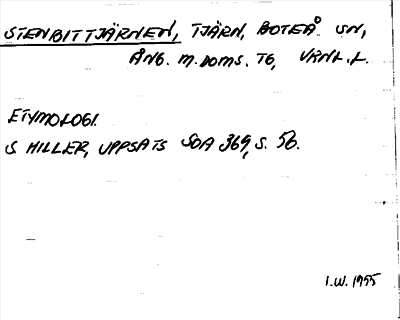 STENBITTJÄRNEN, TJÄRN, BOTEÅ SN,
ÅNG. M. DOMS. TG, VRNL. L.
ETYMOLOGI.
S HILLER, UPPSATS SOA 369, S. 56.
I.W. 1955